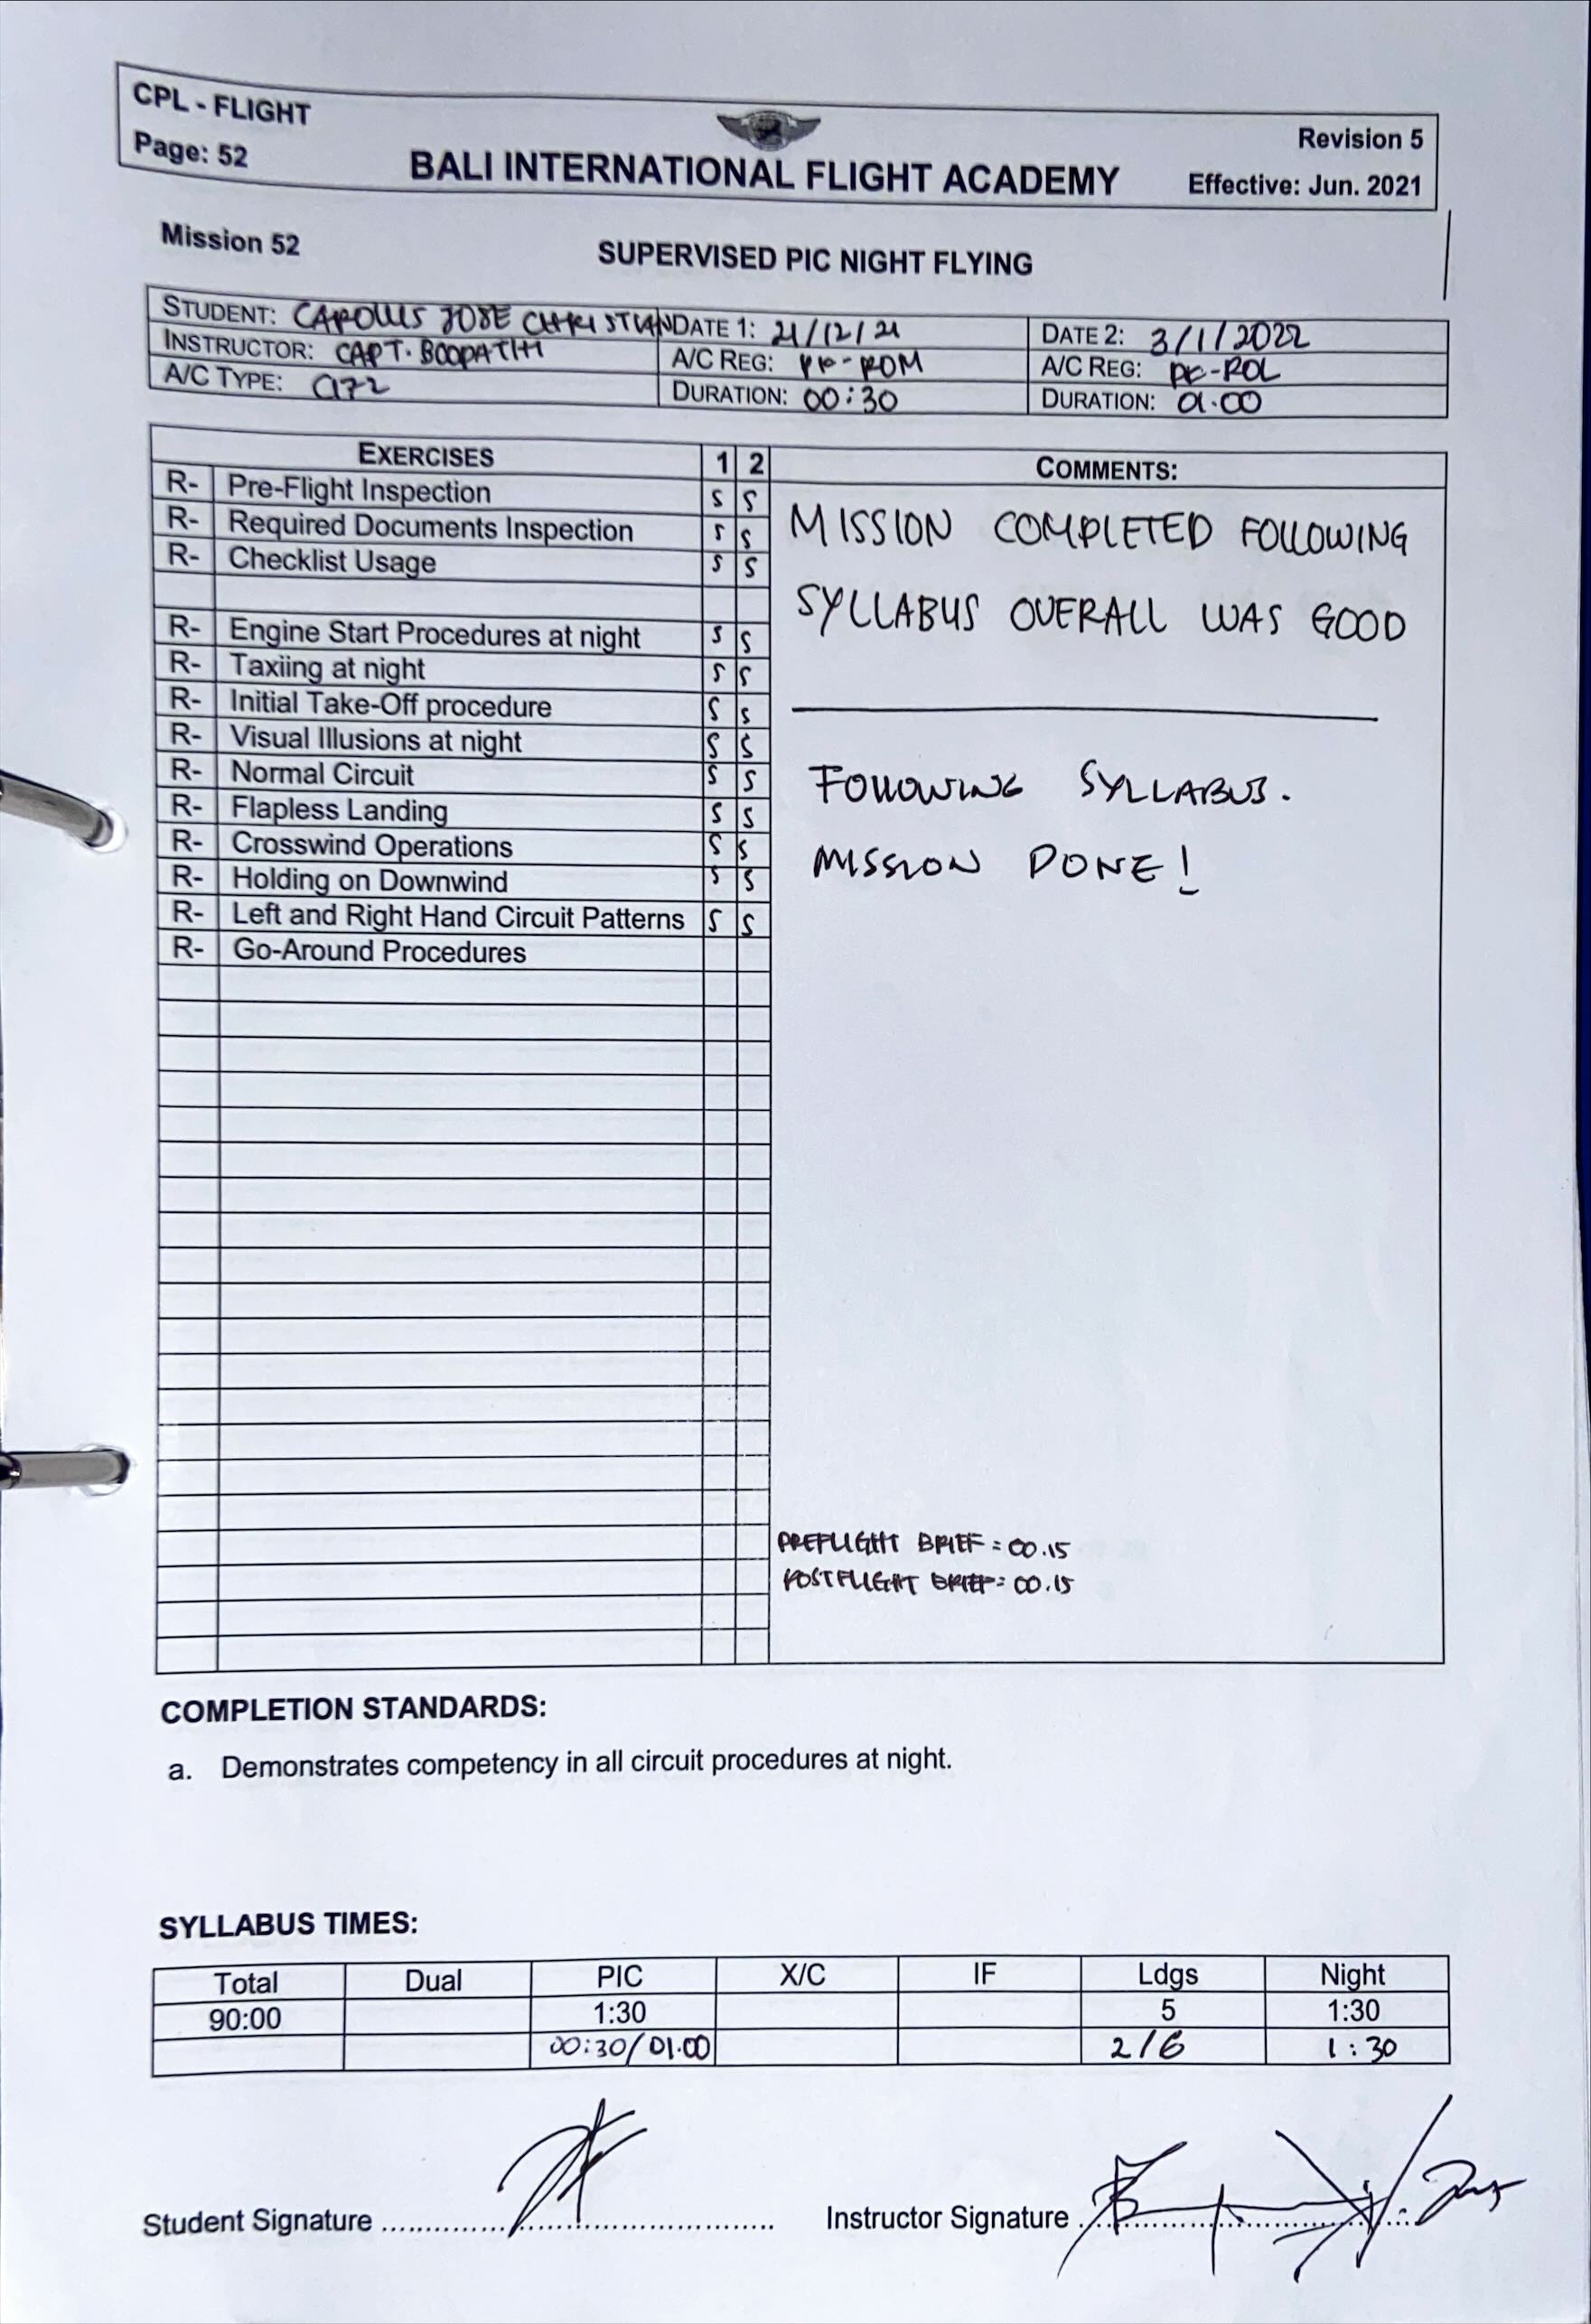 CPL - FLIGHT
Page: 52
BALI INTERNATIONAL FLIGHT ACADEMY
Revision 5
Effective: Jun. 2021
Mission 52
SUPERVISED PIC NIGHT FLYING
STUDENT: CAROLUS JOSE CHRISTIAN DATE 1: 21/12/21 DATE 2: 3/1/2022
INSTRUCTOR: CAPT. BOOPATHI A/C REG: PK-ROM A/C REG: PK-ROL
A/C TYPE: C172 DURATION: 00:30 DURATION: 01.00
EXERCISES 1 2 COMMENTS:
R- Pre-Flight Inspection S S
R- Required Documents Inspection S S
R- Checklist Usage S S
R- Engine Start Procedures at night S S
R- Taxiing at night S S
R- Initial Take-Off procedure S S
R- Visual Illusions at night S S
R- Normal Circuit S S
R- Flapless Landing S S
R- Crosswind Operations S S
R- Holding on Downwind S S
R- Left and Right Hand Circuit Patterns S S
R- Go-Around Procedures
MISSION COMPLETED FOLLOWING
SYLLABUS OVERALL WAS GOOD
FOLLOWING SYLLABUS.
MISSION DONE!
PREFLIGHT BRIEF = 00.15
POSTFLIGHT BRIEF = 00.15
COMPLETION STANDARDS:
a. Demonstrates competency in all circuit procedures at night.
SYLLABUS TIMES:
Total Dual PIC X/C IF Ldgs Night
90:00 1:30 5 1:30
00:30/01.00 2/6 1:30
Student Signature
Instructor Signature